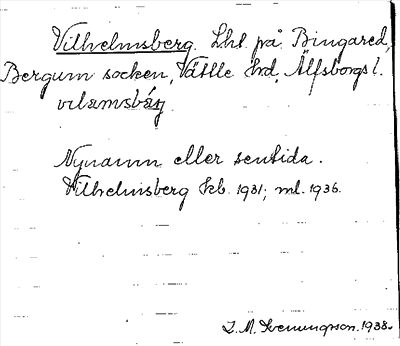 Vilhelmsberg. Lht. på Bingared,
Bergum socken, Vättle hrd, Älfsborgs l.
vılamsbárj
Nynamn eller sentida.
Vilhelmsberg kb. 1931; ml. 1936.
I. M. Svenungsson. 1938.